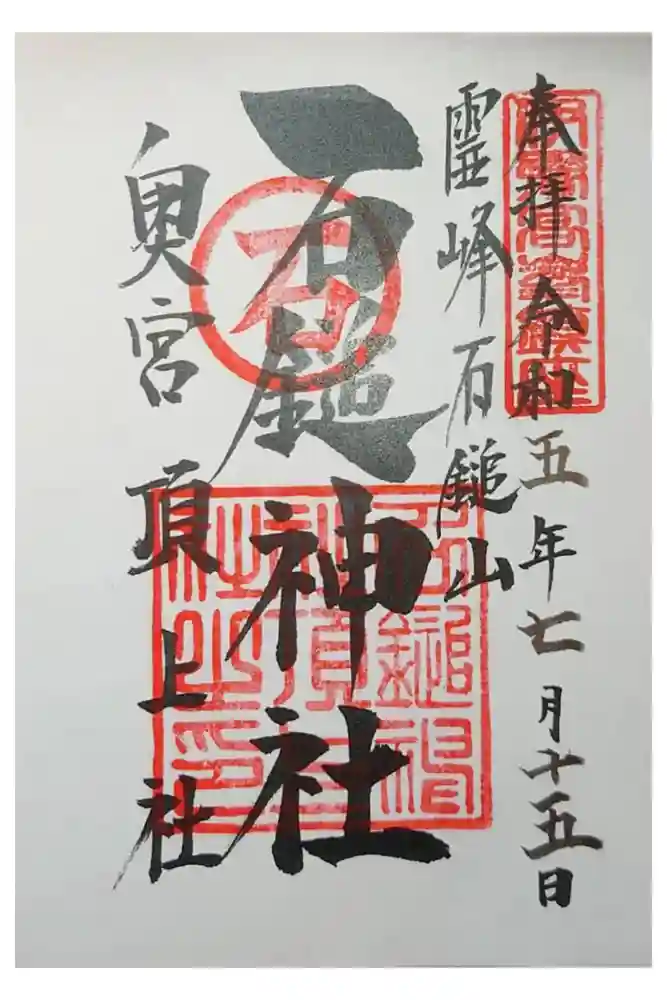 奉拝 令和五年七月十五日
霊峰石鎚山
石鎚神社
奥宮 頂上社
石
石鎚神社頂上社之印